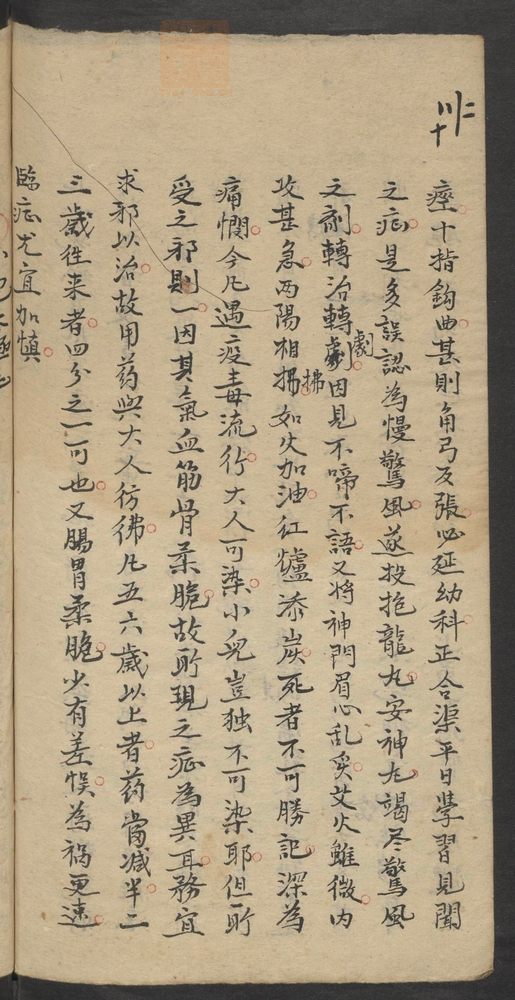 痙十指鈎曲甚則角弓反張必延幼科正合渠平日學習見聞
之症是多誤認為慢驚風遂投抱龍丸安神丸竭尽驚風
之劑轉治轉劇劇因見不啼不語又將神門眉心乱炙艾火雖微内
攻甚急两陽相拂拂如火加油红爐添炭死者不可勝記深為
痛憫今凡遇疫毒流行大人可染小兒豈独不可染耶但所
受之邪則一因其氣血筋骨柔脆故所現之症為異耳務宜
求邪以治故用药與大人彷彿凡五六歲以上者药當减半二
三歲往来者四分之一可也又腸胃柔脆少有差悮為禍更速
臨症尤宜加慎